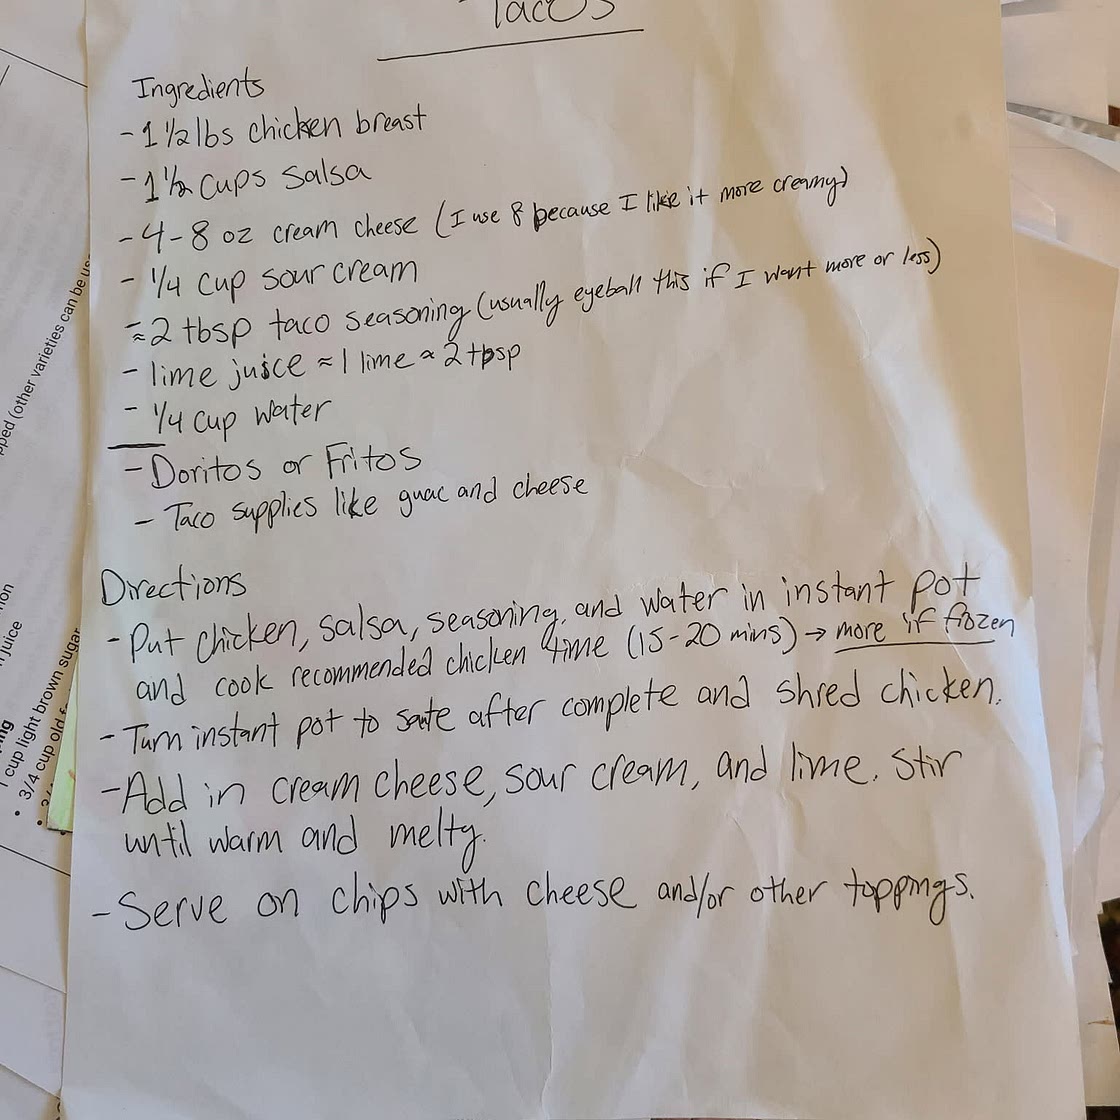 Tacos
Ingredients
- 1 1/2 lbs chicken breast
- 1 1/2 cups salsa
- 4-8 oz cream cheese (I use 8 because I like it more creamy)
- 1/4 cup sour cream
- ≈2 tbsp taco seasoning (usually eyeball this if I want more or less)
- lime juice ≈ 1 lime ≈ 2 tbsp
- 1/4 cup water
- Doritos or Fritos
- Taco supplies like guac and cheese
Directions
- Put chicken, salsa, seasoning, and water in instant pot
and cook recommended chicken time (15-20 mins) → more if frozen
- Turn instant pot to saute after complete and shred chicken.
- Add in cream cheese, sour cream, and lime. Stir
until warm and melty.
- Serve on chips with cheese and/or other toppings.
(other varieties can be
juice
cup light brown sugar
• 3/4 cup old